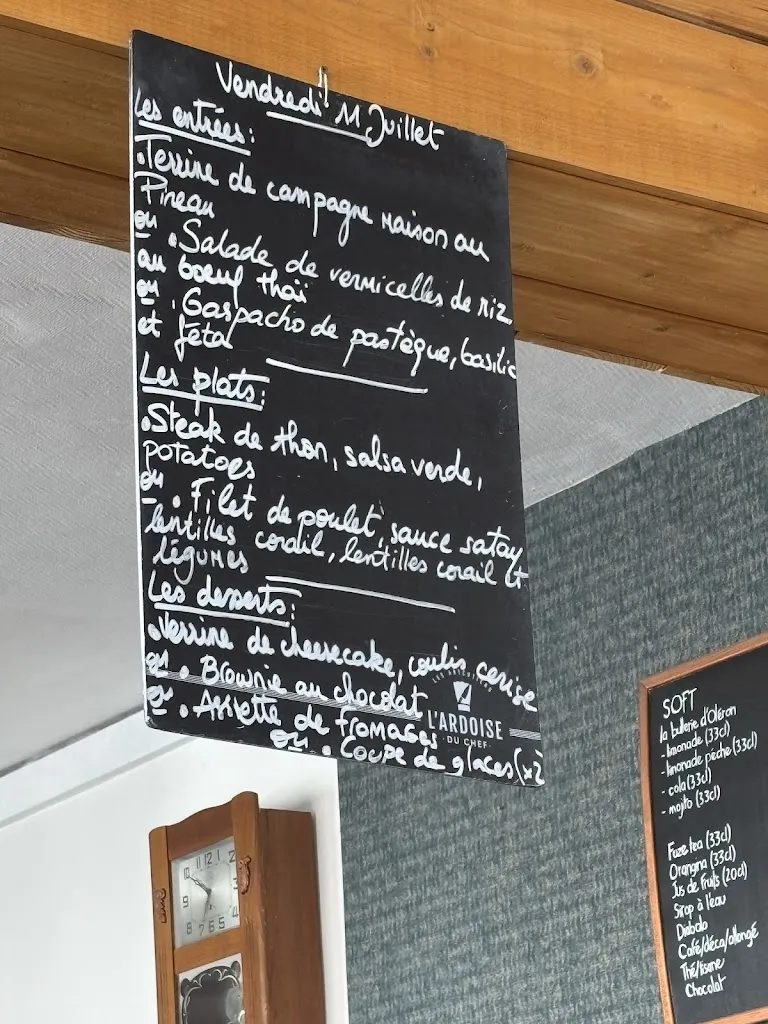 Vendredi 11 Juillet
Les entrées:
. Terrine de campagne maison au
Pineau
ou . Salade de vermicelles de riz
au boeuf thaï
ou . Gaspacho de pastèque, basilic
et féta
Les plats:
. Steak de thon, salsa verde,
potatoes
ou . Filet de poulet, sauce satay
lentilles corail, lentilles corail et
légumes
Les desserts:
. Verrine de cheesecake, coulis cerise
ou . Brownie au chocolat
ou . Assiette de fromages
ou . Coupe de glaces (x2
LES ARTISANS
L'ARDOISE
DU CHEF
SOFT
la bullerie d'Oléron
- limonade (33cl)
- limonade pêche (33cl)
- cola (33cl)
- mojito (33cl)
Fuze tea (33cl)
Orangina (33cl)
Jus de Fruits (20cl)
Sirop à l'eau
Diabolo
Café/déca/allongé
Thé/tisane
Chocolat